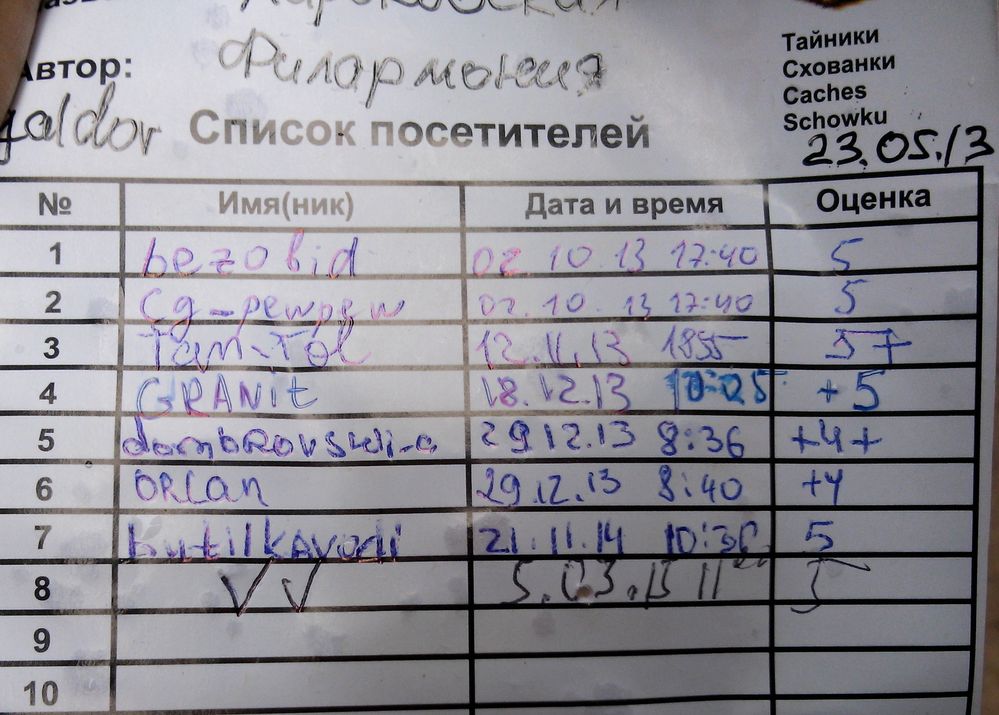 Харьковская
Автор: Филармония
galdor
Тайники
Схованки
Caches
Schowku
Список посетителей
23.05.13
№ Имя(ник) Дата и время Оценка
1 bezobid 02.10.13 17:40 5
2 cg-pewpew 02.10.13 17:40 5
3 Tan-Tol 12.11.13 1855 5+
4 GRANit 18.12.13 10:05 +5
5 29.12.13 8:36 +4+
6 ORLan 29.12.13 8:40 +4
7 butilkavodi 21.11.14 5
8 VV 5.03.15 5
9
10